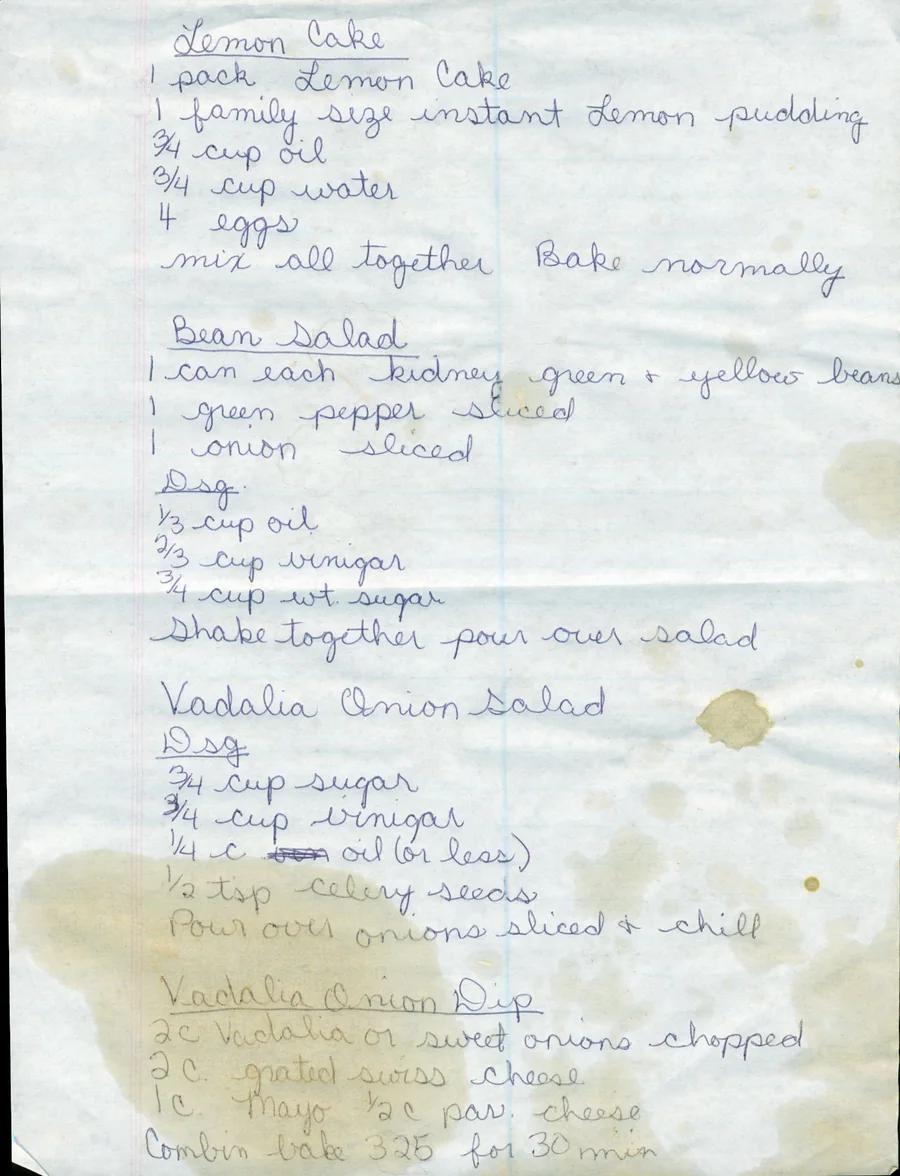 Lemon Cake
1 pack Lemon Cake
1 family size instant Lemon pudding
3/4 cup oil
3/4 cup water
4 eggs
mix all together Bake normally
Bean Salad
1 can each kidney green + yellow beans
1 green pepper sliced
1 onion sliced
Dsg.
1/3 cup oil
2/3 cup vinigar
3/4 cup wt. sugar
Shake together pour over salad
Vadalia Onion Salad
Dsg
3/4 cup sugar
3/4 cup vinigar
1/4 c oil (or less)
1/2 tsp celery seeds
Pour over onions sliced & chill
Vadalia Onion Dip
2c Vadalia or sweet onions chopped
2 c. grated swiss cheese
1c. Mayo 1/2 c par. cheese
Combin bake 325 for 30 min